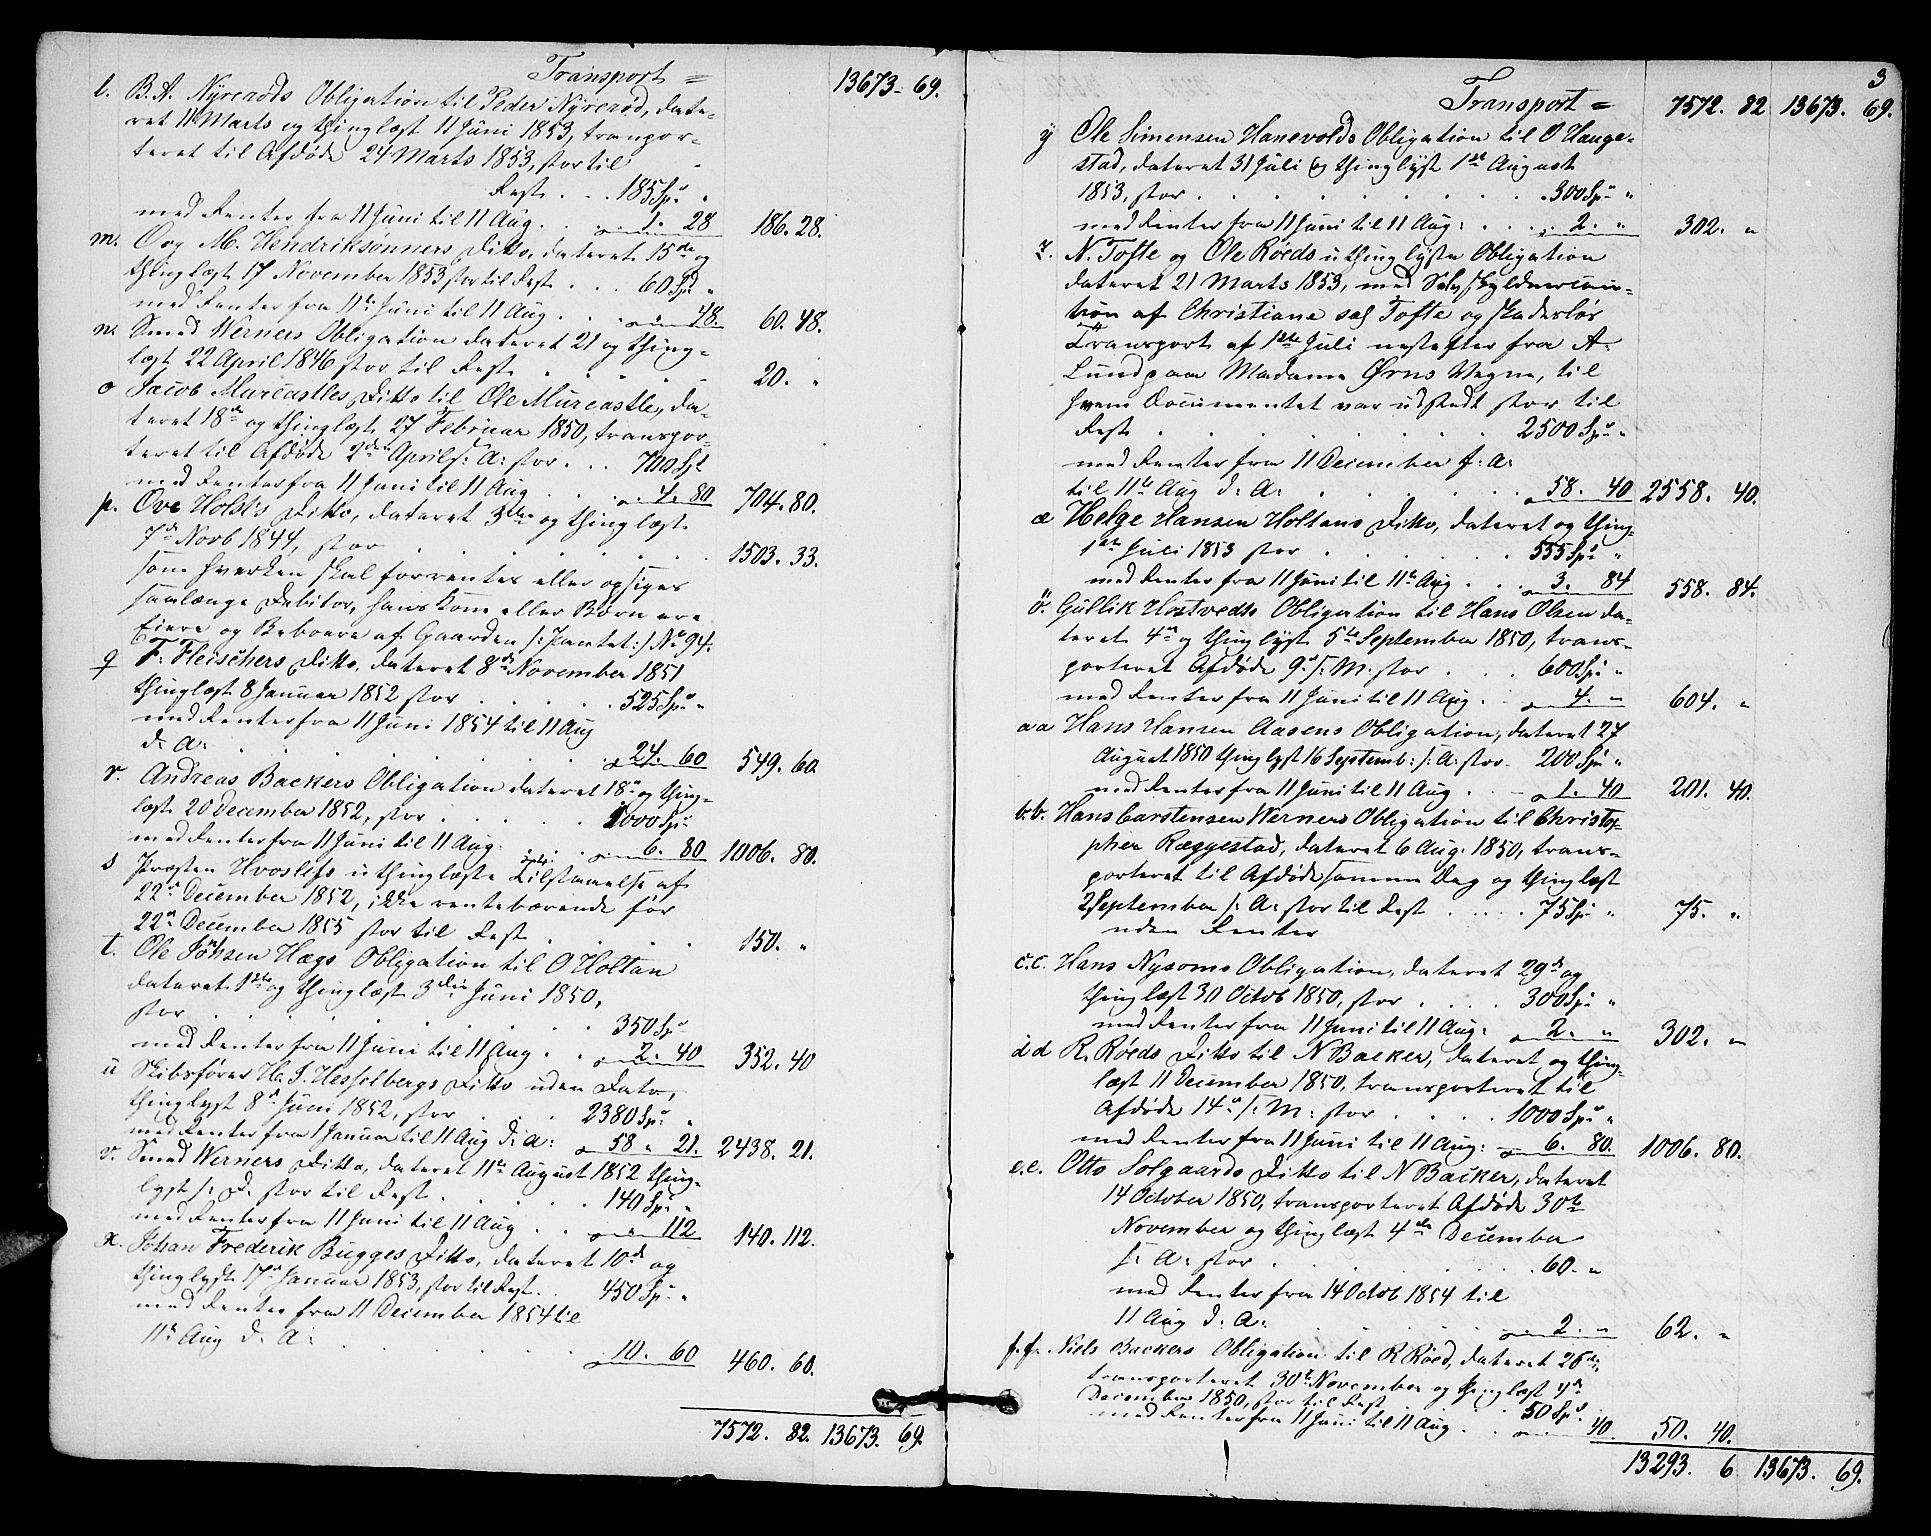 Transport = 13673. 69.
l. B. A. Nyrerøds Obligation til Peder Nyrerød, date-
ret 11 Marts og thinglæst 11 Juni 1853, transpor-
teret til Afdøde 24 Marts 1853, stor til
Rest . . . 185 Spd "
med Renter fra 11 Juni til 11 Aug. . . 1. 28 186. 28.
m. O og M. Hendriksønners Ditto, dateret 15de og
thinglæst 17 November 1853 stor til Rest . . . 60 Spd "
med Renter fra 11te Juni til 11 Aug . . . " 48. 60. 48.
n. Smed Werners Obligation dateret 21 og thing-
læst 22 April 1846 stor til Rest . . . . . 20. "
o Jacob Murcastles Ditto til Ole Murcastle, da-
teret 18de og thinglæst 27 Februar 1850, transpor-
teret til Afdøde 2den April s: A: stor . . . 700 Spd
med Renter fra 11 Juni til 11 Aug . . . 4. 80 704. 80.
p. Ove Holsts Ditto, dateret 3die og thinglæst
7de Novb 1844, stor . . . . . . . . 1503. 33.
som hverken skal forrentes eller opsiges
saalænge Debitor, hans Kone eller Børn ere
Eiere og Beboere af Gaarden /: Pantet :/ No 94.
q F. Fleischers Ditto. dateret 8de November 1851
thinglæst 8 Januar 1852 stor . . . . . 525 Spd "
med Renter fra 11 Juni 1854 til 11 Aug
d: A: . . . . . . . . . 24. 60 549. 60.
r. Andreas Backers Obligation dateret 18de og thing-
læst 20 December 1852, stor . . . . . 1000 Spd
med Renter fra 11 Juni til 11 Aug. . . . 6. 80 1006. 80.
s Præsten Hvoslefs uthinglæste Tilstaaelse af
22de December 1852, ikke rentebærende før
22de December 1855 stor til Rest . . . . . 150. "
t. Ole Johsen Hægs Obligation til O Holtan
dateret 1ste og thinglæst 3die Juni 1850,
stor . . . . . . . . . 350 Spd
med Renter fra 11 Juni til 11 Aug . . 2. 40 352. 40
u Skibsfører H. J. Hesselbergs Ditto uden Dato,
thinglyst 8de Juni 1852, stor . . . 2380 Spd "
med Renter fra 1 Januar til 11 Aug d: A: 58 " 21. 2438. 21.
v. Smed Werners Ditto, dateret 11te August 1852 thing-
lyst s: D. stor til Rest . . . . . 140 Spd "
med Renter fra 11 Juni til 11 Aug . . " 112 140. 112.
x. Johan Frederik Bugges Ditto, dateret 10de og
thinglyst 17de Januar 1853, stor til Rest . . 450 Spd "
med Renter fra 11 December 1854 til
11te Aug d: A: . . . . . . . 10. 60 460. 60.
7572. 82. 13673. 69.
3
Transport = 7572. 82 13673. 69.
y Ole Simensen Hanevolds Obligation til O Hauge-
stad, dateret 31 Juli og thinglyst 1ste August
1853, stor . . . . . . . . . 300 Spd "
med Renter fra 11 Juni til 11 Aug: . . . . 2. " 302. "
z. N. Tofte og Ole Røeds uthinglyste Obligation
dateret 21 Marts 1853, med Selvskyldnercau-
tion af Christiane sal Tofte og skadesløs
Transport af 1ste Juli nestefter fra A.
Lund paa Madame Ørns Vegne, til
hvem Documentet var udstedt stor til
Rest . . . . . . . . . 2500 Spd "
med Renter fra 11 December f: A:
til 11te Aug d: A: . . . . . . 58. 40 2558. 40.
æ Helge Hansen Holtans Ditto, dateret og thing-
1ste Juli 1853 stor . . . . . . 555 Spd "
med Renter fra 11 Juni til 11te Aug . . . 3. 84 558. 84.
ö. Gullik Hostvedts Obligation til Hans Olsen da-
teret 4de og thinglyst 5te September 1850, trans-
porteret Afdøde 9de s: M: stor . . . . 600 Spd "
med Renter fra 11 Juni til 11 Aug . . . 4. " 604. "
aa Hans Hansen Aasens Obligation, dateret 27
August 1850 thinglyst 16 Septemb: s: A: stor . 200 Spd "
med Renter fra 11 Juni til 11 Aug . . . 1. 40 201. 40.
b.b. Hans Carstensen Werners Obligation til Christo-
pher Ræggestad, dateret 6 Aug. 1850, trans-
porteret til Afdøde samme Dag og thinglæst
2 September s: A: stor til Rest . . . . . 75 Spd " 75. "
uden Renter
c.c. Hans Nysoms Obligation, dateret 29de og
thinglæst 30 Octob 1850, stor . . . . 300 Spd "
med Renter fra 11 Juni til 11 Aug: 2. " 302. "
dd R. Røeds Ditto til N Backer, dateret og thing-
læst 11 December 1850, transporteret til
Afdøde 14de s: M: stor . . . . . 1000 Spd "
med Renter fra 11 Juni til 11 Aug: 6. 80. 1006. 80.
e.e. Otto Solgaards Ditto til N Backer, dateret
14 October 1850, transporteret Afdøde 30te
November og thinglæst 4de December
s: A: stor . . . . . . . . 60. "
med Renter fra 14 Octob 1854 til
11 Aug d: A: . . . . . . . 2. " 62. "
f.f. Niels Backers Obligation til R Røed, dateret 26de,
transporteret 30te November og thinglæst 4de
December 1850, stor til Rest . . . . . 50 Spd.
med Renter fra 11 Juni til 11 Aug . . . 40. 50. 40.
13293. 6 13673. 69.